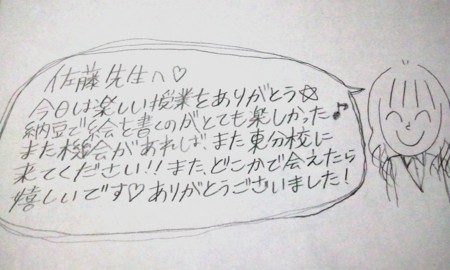 佐藤先生へ♡
今日は楽しい授業をありがとう☆
納豆で絵を書くのがとても楽しかった♪
また機会があれば、また東分校に
来てください!!また、どこかで会えたら
嬉しいです♡ありがとうございました!